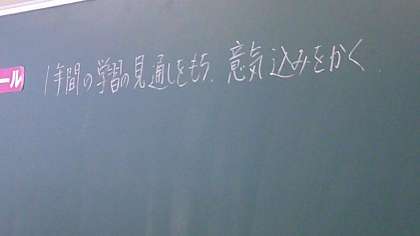 ール
1年間の学習の見通しをもち、意気込みをかく